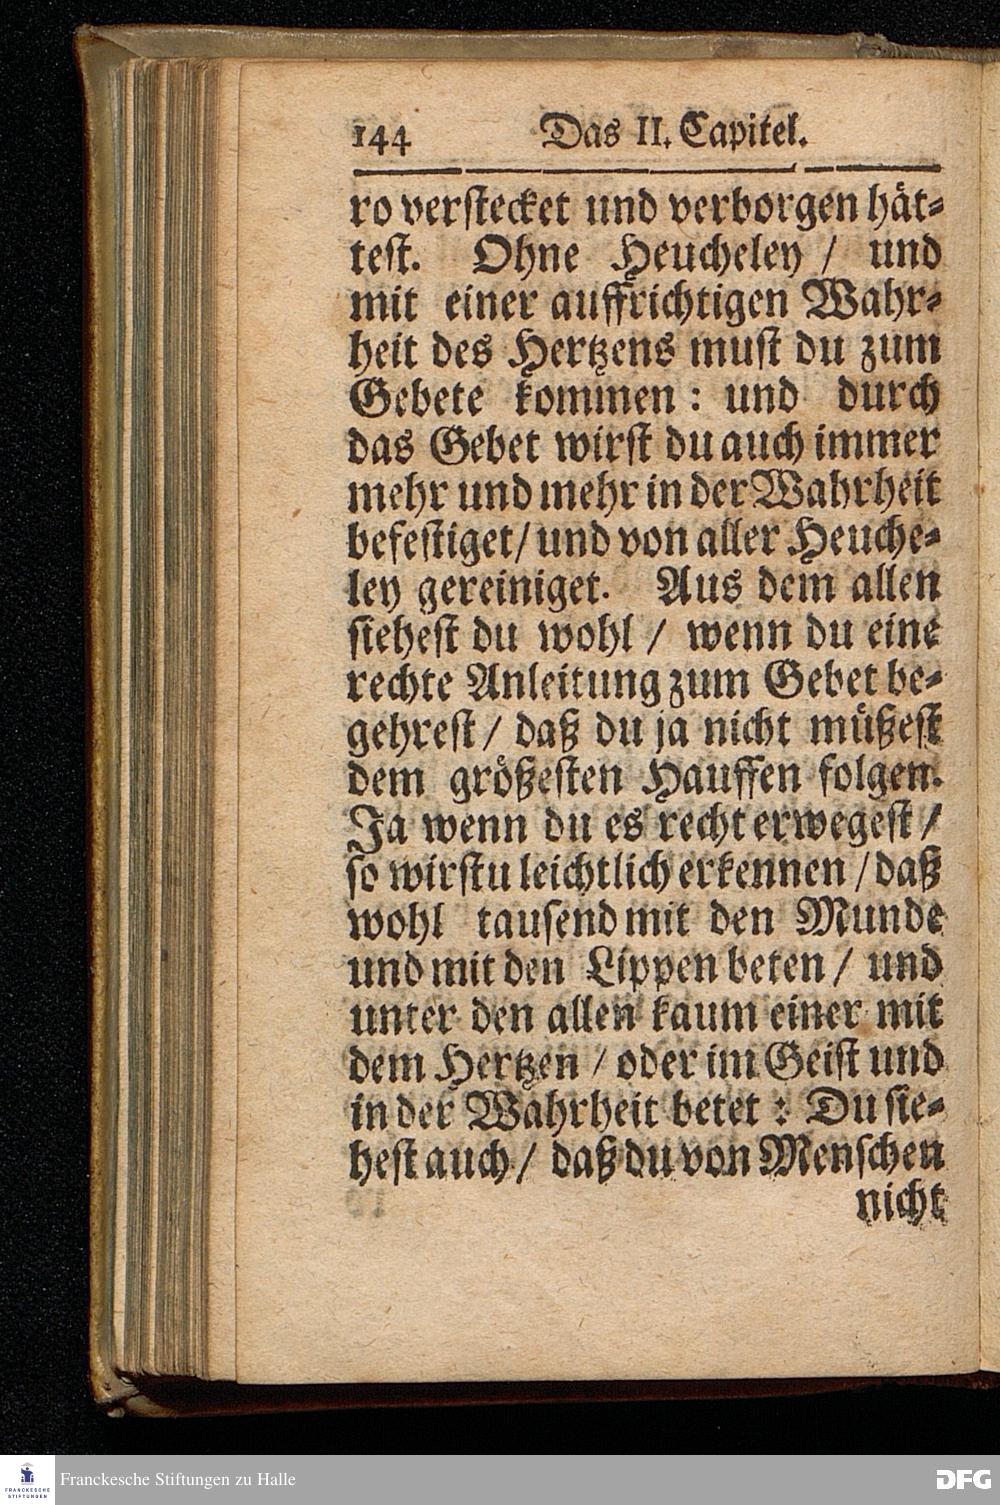 144 Das II. Capitel.
ro verstecket und verborgen hät-
test. Ohne Heucheley / und
mit einer auffrichtigen Wahr-
heit des Hertzens must du zum
Gebete kommen: und durch
das Gebet wirst du auch immer
mehr und mehr in der Wahrheit
befestiget / und von aller Heuche-
ley gereiniget. Aus dem allen
siehest du wohl / wenn du eine
rechte Anleitung zum Gebet be-
gehrest / daß du ja nicht müßest
dem größesten Hauffen folgen.
Ja wenn du es recht erwegest /
so wirstu leichtlich erkennen / daß
wohl tausend mit den Munde
und mit den Lippen beten / und
unter den allen kaum einer mit
dem Hertzen / oder im Geist und
in der Wahrheit betet: Du sie-
hest auch / daß du von Menschen
nicht
FRANCKESCHE
STIFTUNGEN
Franckesche Stiftungen zu Halle
DFG